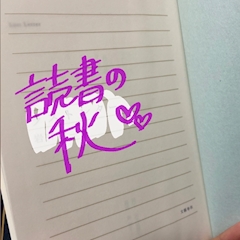 読書の
秋